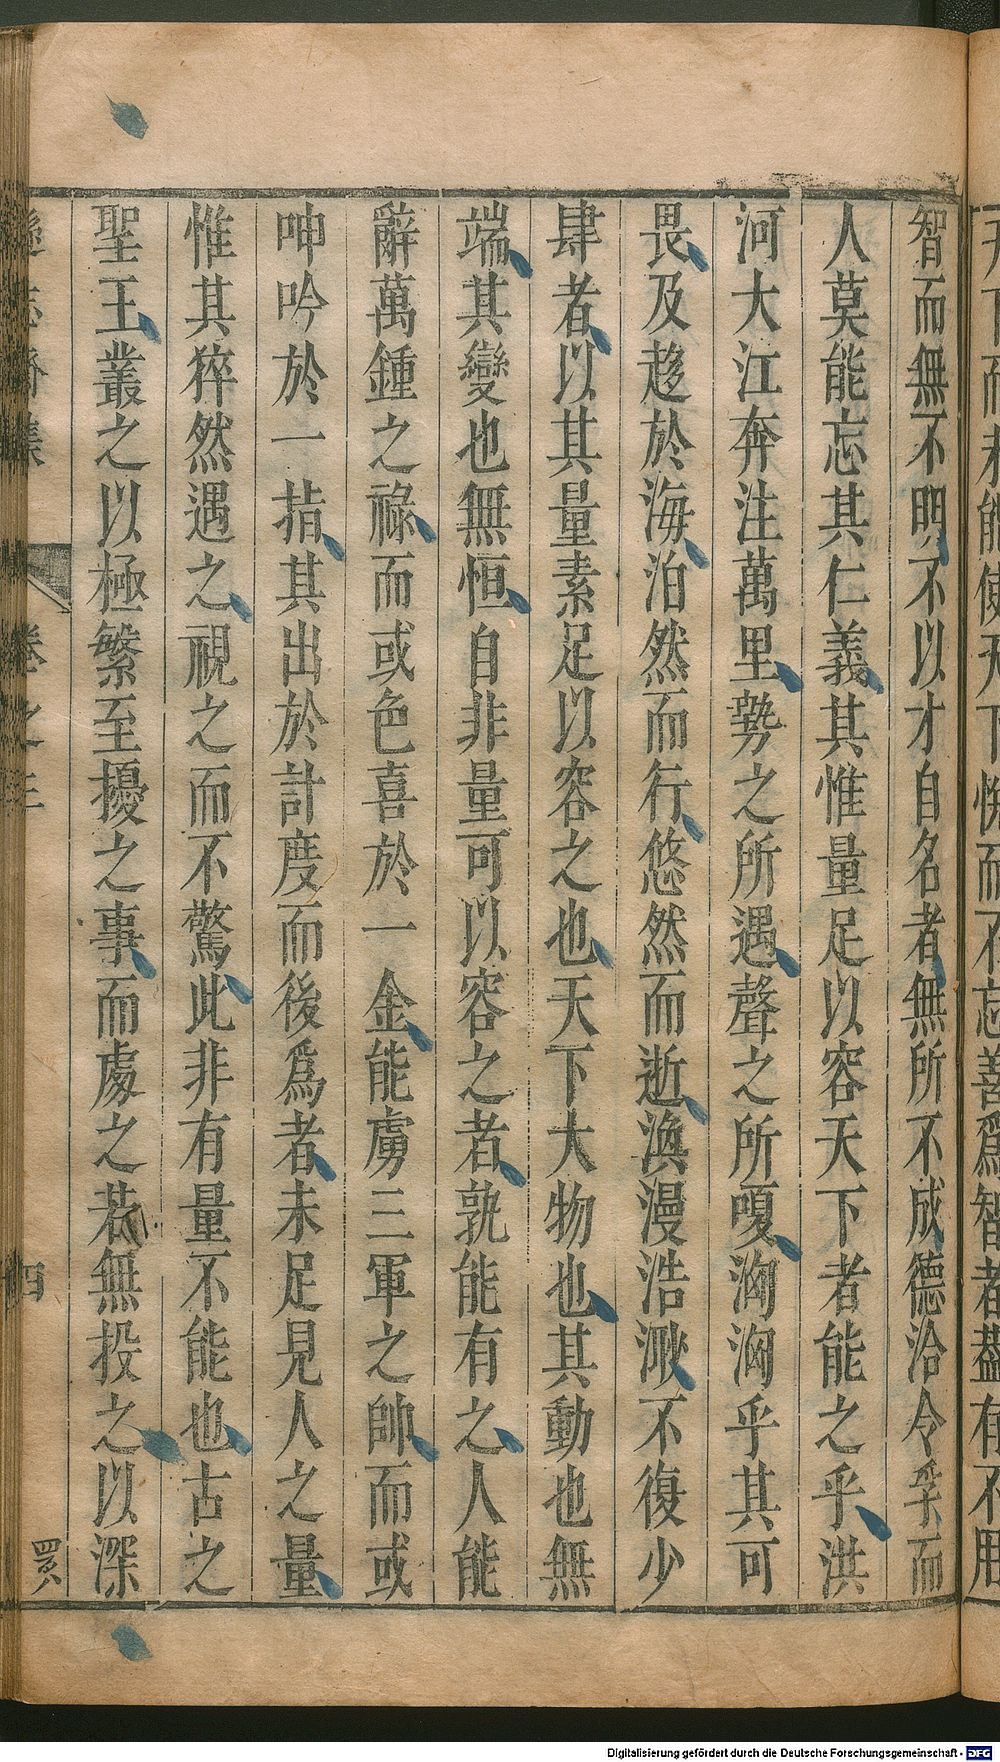 智而無不明不以才自名者無所不成德洽令孚而
人莫能忘其仁義其惟量足以容天下者能之乎洪
河大江奔注萬里勢之所遇聲之所嗄洶洶乎其可
畏及趍於海泊然而行悠然而逝渙漫浩渺不復少
肆者以其量素足以容之也天下大物也其動也無
端其變也無恒自非量可以容之者孰能有之人能
辭萬鍾之祿而或色喜於一金能虜三軍之帥而或
呻吟於一指其出於計度而後爲者未足見人之量
惟其猝然遇之視之而不驚此非有量不能也古之
聖王叢之以極繁至擾之事而處之若無投之以深
遜志齋集
卷之三
四
Digitalisierung gefördert durch die Deutsche Forschungsgemeinschaft - DFG